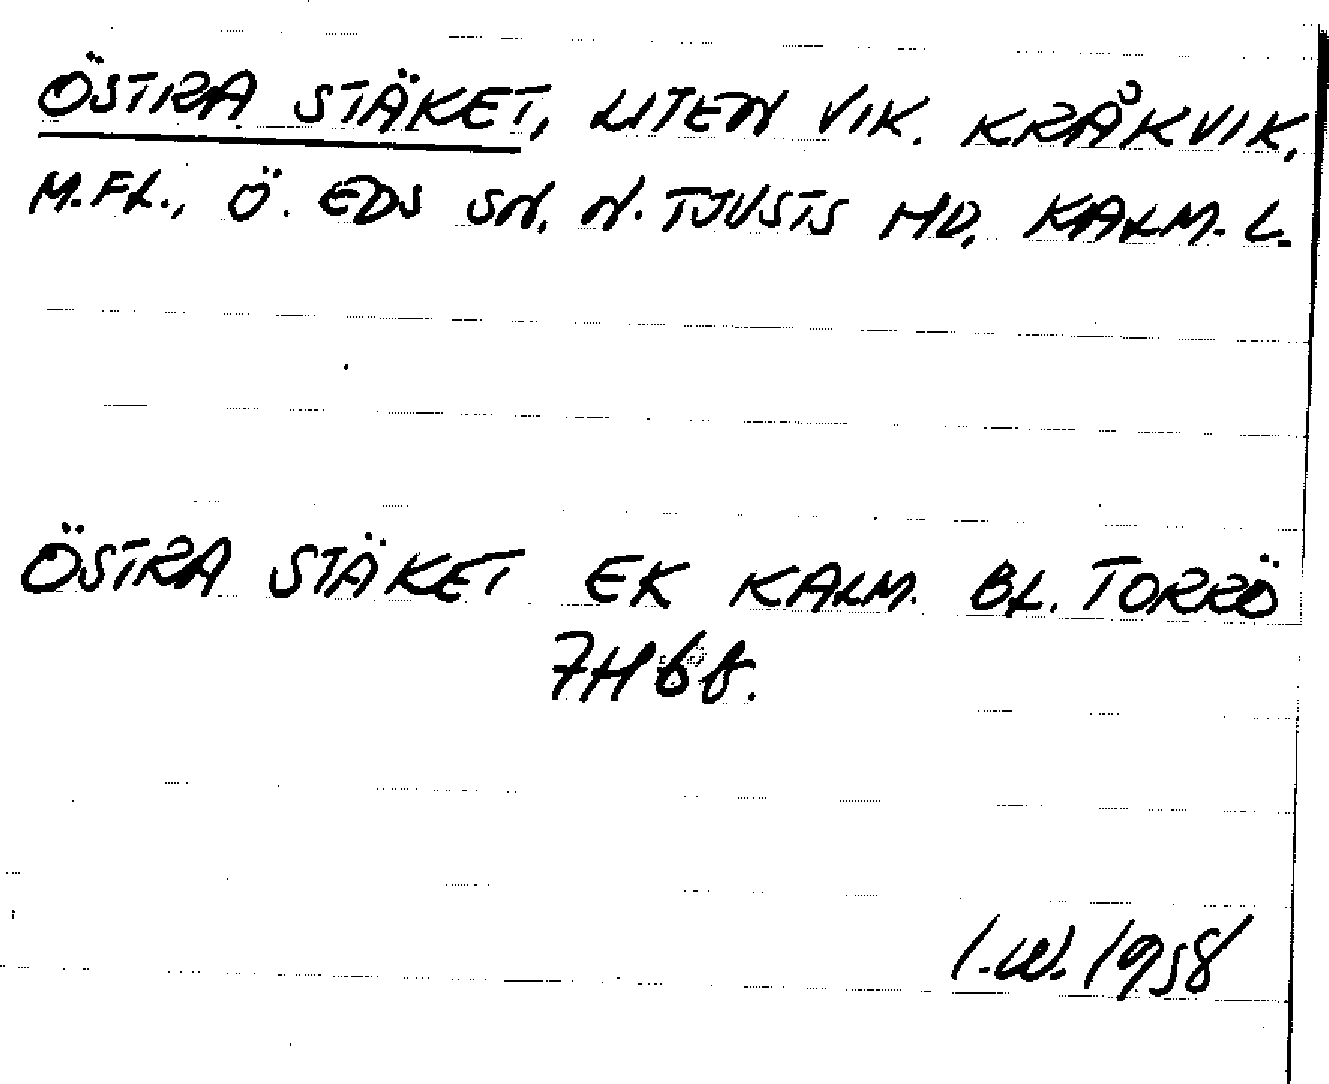 ÖSTRA STÄKET, LITEN VIK. KRÅKVIK,
M.FL., Ö. EDS SN, N. TJUSTS HD, KALM. L.
ÖSTRA STÄKET EK KALM. BL. TORRÖ
7H6f.
I.W. 1958